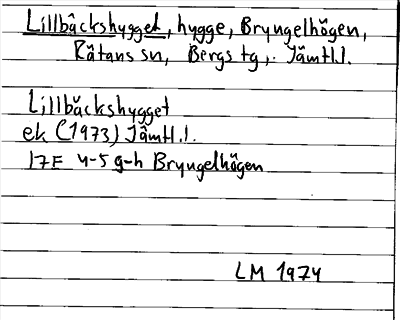 Lillbäckshygget, hygge, Bryngelhögen,
Rätans sn, Bergs tg, Jämtl.l.
Lillbäckshygget
ek (1973) Jämtl.l.
17E 4-5 g-h Bryngelhögen
LM 1974